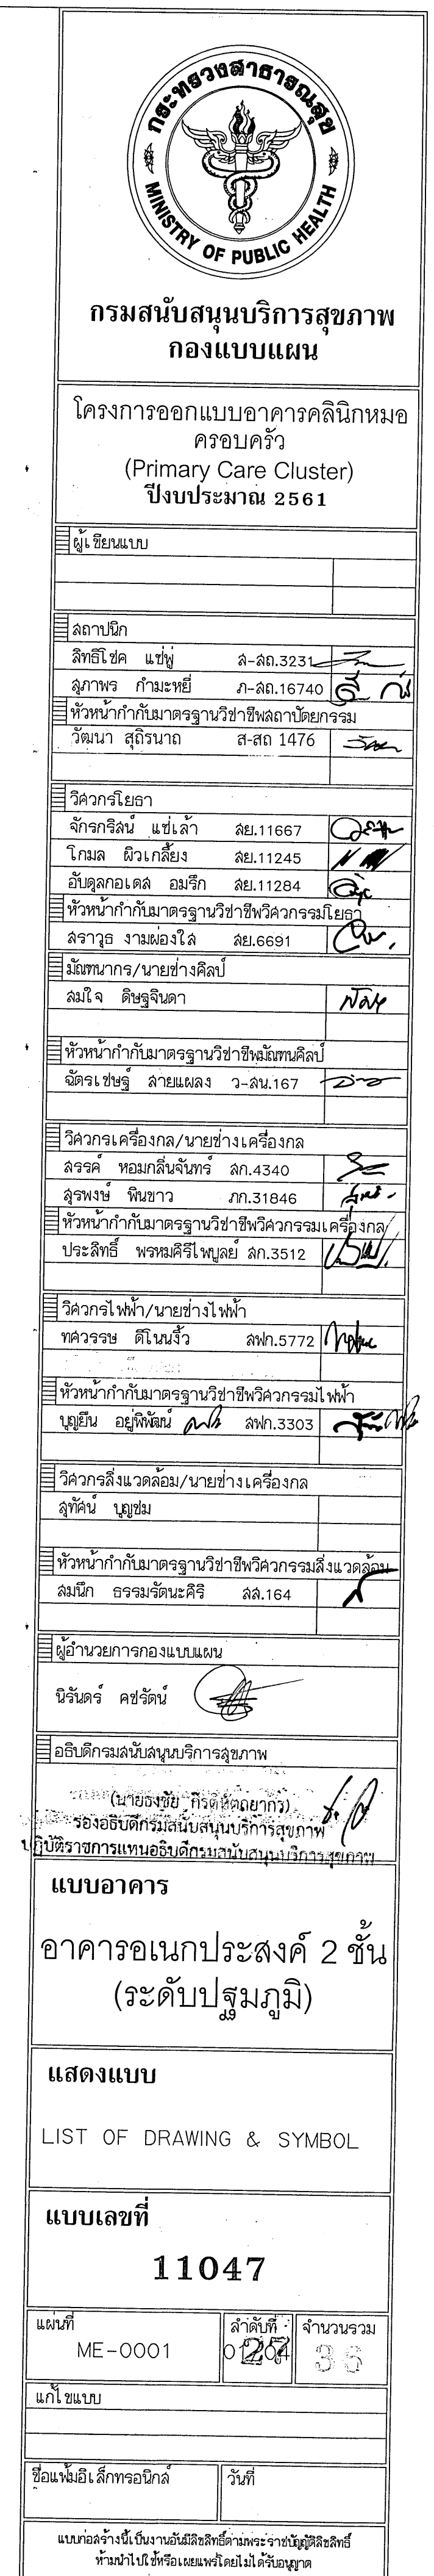 กระทรวงสาธารณสุข
MINISTRY OF PUBLIC HEALTH
กรมสนับสนุนบริการสุขภาพ
กองแบบแผน
โครงการออกแบบอาคารคลินิกหมอ
ครอบครัว
(Primary Care Cluster)
ปีงบประมาณ 2561
ผู้เขียนแบบ
สถาปนิก
สิทธิโชค แซ่พู่ ส-สถ.3231
สุภาพร กำมะหยี่ ภ-สถ.16740
หัวหน้ากำกับมาตรฐานวิชาชีพสถาปัตยกรรม
วัฒนา สุถิรนาถ ส-สถ 1476
วิศวกรโยธา
จักรกริสน์ แซ่เล้า สย.11667
โกมล ผิวเกลี้ยง สย.11245
อับดุลกอเดส อมรึก สย.11284
หัวหน้ากำกับมาตรฐานวิชาชีพวิศวกรรมโยธา
สราวุธ งามผ่องใส สย.6691
มัณฑนากร/นายช่างศิลป์
สมใจ ดิษฐจินดา
หัวหน้ากำกับมาตรฐานวิชาชีพมัณฑนศิลป์
ฉัตรเชษฐ์ สายแผลง ว-สน.167
วิศวกรเครื่องกล/นายช่างเครื่องกล
สรรค์ หอมกลิ่นจันทร์ สก.4340
สุรพงษ์ พินขาว ภก.31846
หัวหน้ากำกับมาตรฐานวิชาชีพวิศวกรรมเครื่องกล
ประสิทธิ์ พรหมคิรีไพบูลย์ สก.3512
วิศวกรไฟฟ้า/นายช่างไฟฟ้า
ทศวรรษ ตีโนนงิ้ว สฟก.5772
หัวหน้ากำกับมาตรฐานวิชาชีพวิศวกรรมไฟฟ้า
บุญยืน อยู่พิพัฒน์ สฟก.3303
วิศวกรสิ่งแวดล้อม/นายช่างเครื่องกล
สุทัศน์ บุญชม
หัวหน้ากำกับมาตรฐานวิชาชีพวิศวกรรมสิ่งแวดล้อม
สมนึก ธรรมรัตนะคิริ สส.164
ผู้อำนวยการกองแบบแผน
นิรันดร์ คชรัตน์
อธิบดีกรมสนับสนุนบริการสุขภาพ
(นายธงชัย กีรติหัตถยากร)
รองอธิบดีกรมสนับสนุนบริการสุขภาพ
ปฏิบัติราชการแทนอธิบดีกรมสนับสนุนบริการสุขภาพ
แบบอาคาร
อาคารอเนกประสงค์ 2 ชั้น
(ระดับปฐมภูมิ)
แสดงแบบ
LIST OF DRAWING & SYMBOL
แบบเลขที่
11047
แผ่นที่ ลำดับที่ จำนวนรวม
ME-0001 27 36
แก้ไขแบบ
ชื่อแฟ้มอิเล็กทรอนิกส์ วันที่
แบบก่อสร้างนี้เป็นงานอันมีลิขสิทธิ์ตามพระราชบัญญัติลิขสิทธิ์
ห้ามนำไปใช้หรือเผยแพร่โดยไม่ได้รับอนุญาต